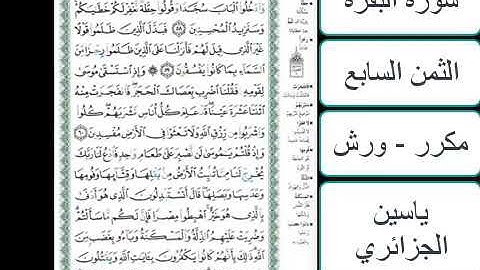 وَادْخُلُوا الْبَابَ سُجَّدًا وَقُولُوا حِطَّةٌ نَّغْفِرْ لَكُمْ خَطَايَاكُمْ
وَسَنَزِيدُ الْمُحْسِنِينَ فَبَدَّلَ الَّذِينَ ظَلَمُوا قَوْلًا
غَيْرَ الَّذِي قِيلَ لَهُمْ فَأَنزَلْنَا عَلَى الَّذِينَ ظَلَمُوا رِجْزًا مِّنَ
السَّمَاءِ بِمَا كَانُوا يَفْسُقُونَ وَإِذِ اسْتَسْقَىٰ مُوسَىٰ
لِقَوْمِهِ فَقُلْنَا اضْرِب بِّعَصَاكَ الْحَجَرَ فَانفَجَرَتْ مِنْهُ
اثْنَتَا عَشْرَةَ عَيْنًا قَدْ عَلِمَ كُلُّ أُنَاسٍ مَّشْرَبَهُمْ كُلُوا
وَاشْرَبُوا مِن رِّزْقِ اللَّهِ وَلَا تَعْثَوْا فِي الْأَرْضِ مُفْسِدِينَ
وَإِذْ قُلْتُمْ يَا مُوسَىٰ لَن نَّصْبِرَ عَلَىٰ طَعَامٍ وَاحِدٍ فَادْعُ لَنَا رَبَّكَ
يُخْرِجْ لَنَا مِمَّا تُنبِتُ الْأَرْضُ مِن بَقْلِهَا وَقِثَّائِهَا وَفُومِهَا
وَعَدَسِهَا وَبَصَلِهَا قَالَ أَتَسْتَبْدِلُونَ الَّذِي هُوَ أَدْنَىٰ
بِالَّذِي هُوَ خَيْرٌ اهْبِطُوا مِصْرًا فَإِنَّ لَكُم مَّا سَأَلْتُمْ
وَضُرِبَتْ عَلَيْهِمُ الذِّلَّةُ وَالْمَسْكَنَةُ وَبَاءُو بِغَضَبٍ مِّنَ
اللَّهِ ذَٰلِكَ بِأَنَّهُمْ كَانُوا يَكْفُرُونَ بِآيَاتِ اللَّهِ وَيَقْتُلُونَ
سورة البقرة
الثمن السابع
مكرر - ورش
ياسين
الجزائري